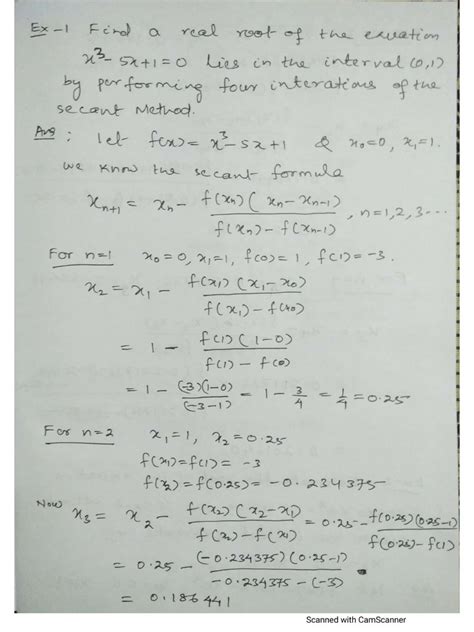 Ex-1 Find a real root of the equation
x³-5x+1=0 lies in the interval (0,1)
by performing four interations of the
secant Method.
Ans: let f(x)=x³-5x+1 & x₀=0, x₁=1.
we know the secant formula
xₙ₊₁ = xₙ - f(xₙ)(xₙ-xₙ₋₁) / f(xₙ)-f(xₙ₋₁), n=1,2,3...
For n=1 x₀=0, x₁=1, f(0)=1, f(1)=-3.
x₂ = x₁ - f(x₁)(x₁-x₀) / f(x₁)-f(x₀)
= 1 - f(1)(1-0) / f(1)-f(0)
= 1 - (-3)(1-0) / (-3-1) = 1 - 3/4 = 1/4 = 0.25
For n=2 x₁=1, x₂=0.25
f(x₁)=f(1)=-3
f(x₂)=f(0.25)=-0.234375
Now, x₃ = x₂ - f(x₂)(x₂-x₁) / f(x₂)-f(x₁) = 0.25 - f(0.25)(0.25-1) / f(0.25)-f(1)
= 0.25 - (-0.234375)(0.25-1) / -0.234375-(-3)
= 0.186441
Scanned with CamScanner